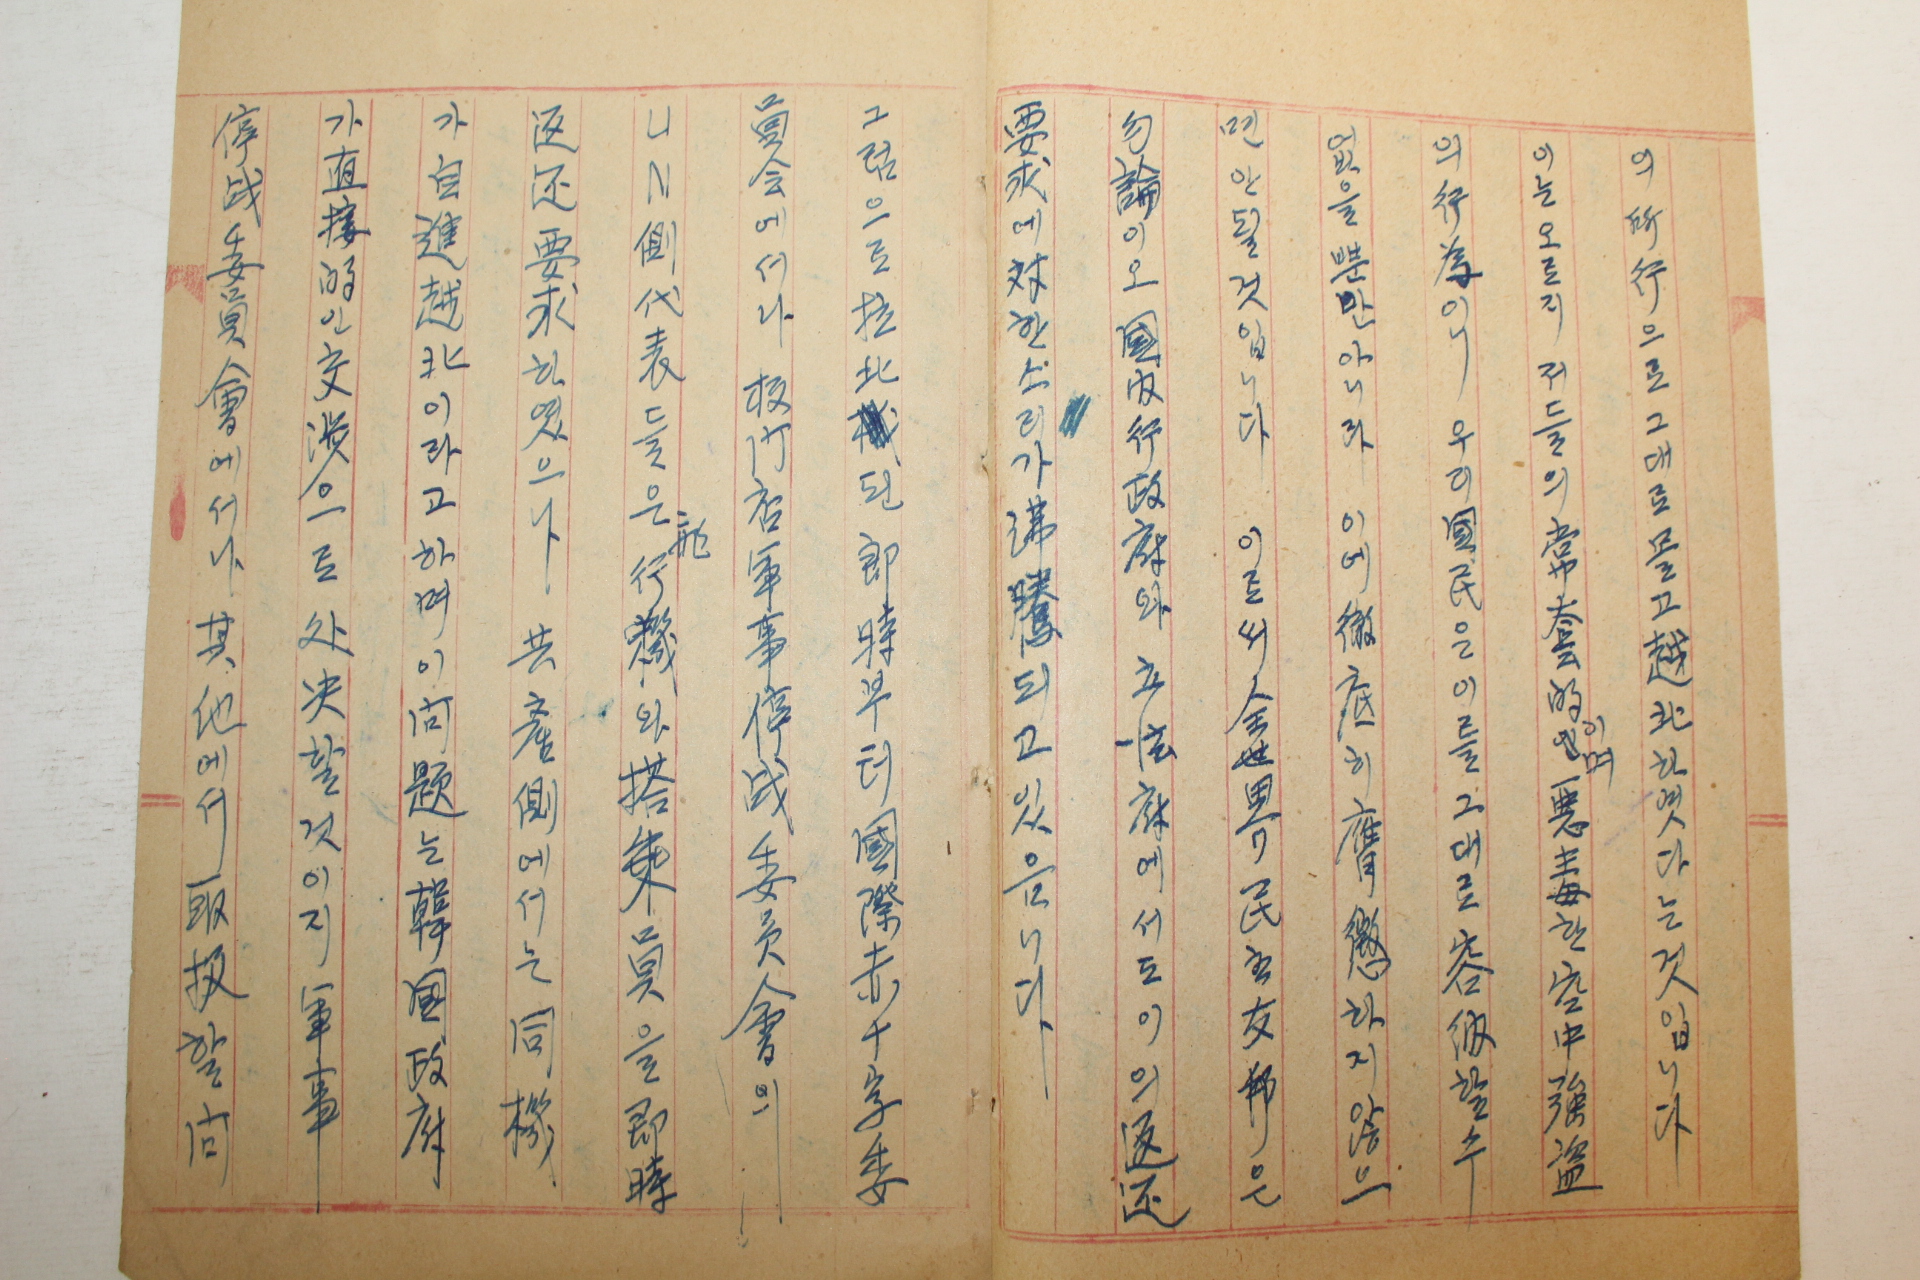 의 所行으로 그대로 몰고 越北하엿다는 것입니다
이는 오로지 저들의 常套的이며 惡毒한 空中強盜
의 行為이니 우리 國民은 이를 그대로 容納할수
없을뿐만아니라 이에 徹底히 膺懲하지 않으
면 안될것입니다 이로써 全世界 民主友邦은
勿論이오 國內行政府와 立法府에서도 이의 返還
要求에 対한 소리가 沸騰되고 있음니다
그럼으로 拉北된 即時부터 國際赤十字委
員会에서나 板门店軍事停战委员會의
UN側代表들은 飛行機와 搭乘員을 即時
返还要求하였으나 共產側에서는 同機
가 自進越北이라고하며 이 问题는 韓國政府
가 直接的인 交涉으로 处决할것이지 軍事
停战委員會에서나 其他에서 取扱할 问